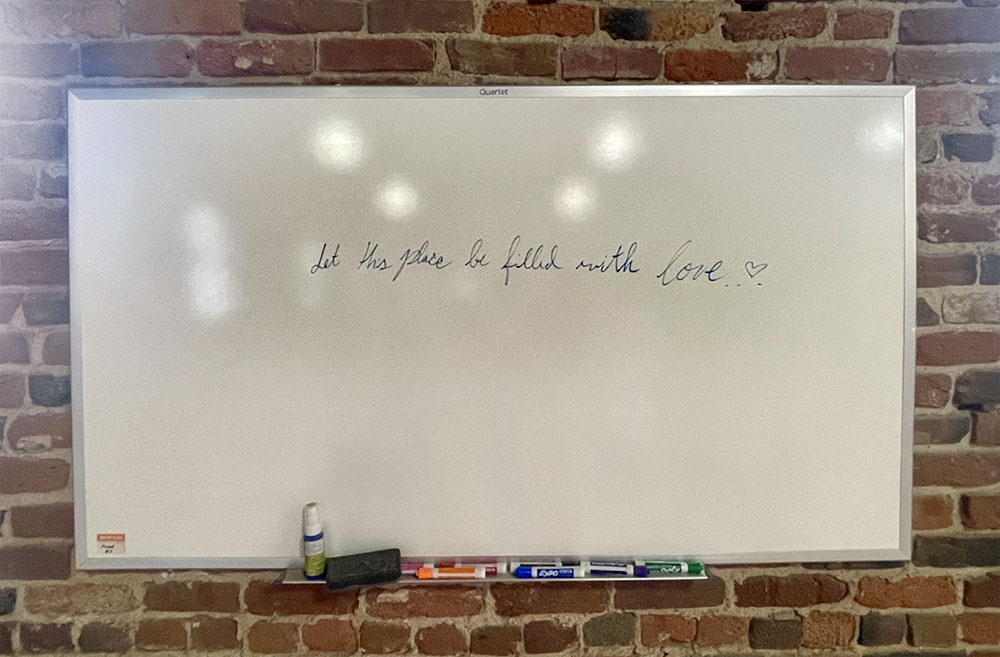 Quartet
Let this place be filled with love... ♡
EXPO
EXPO